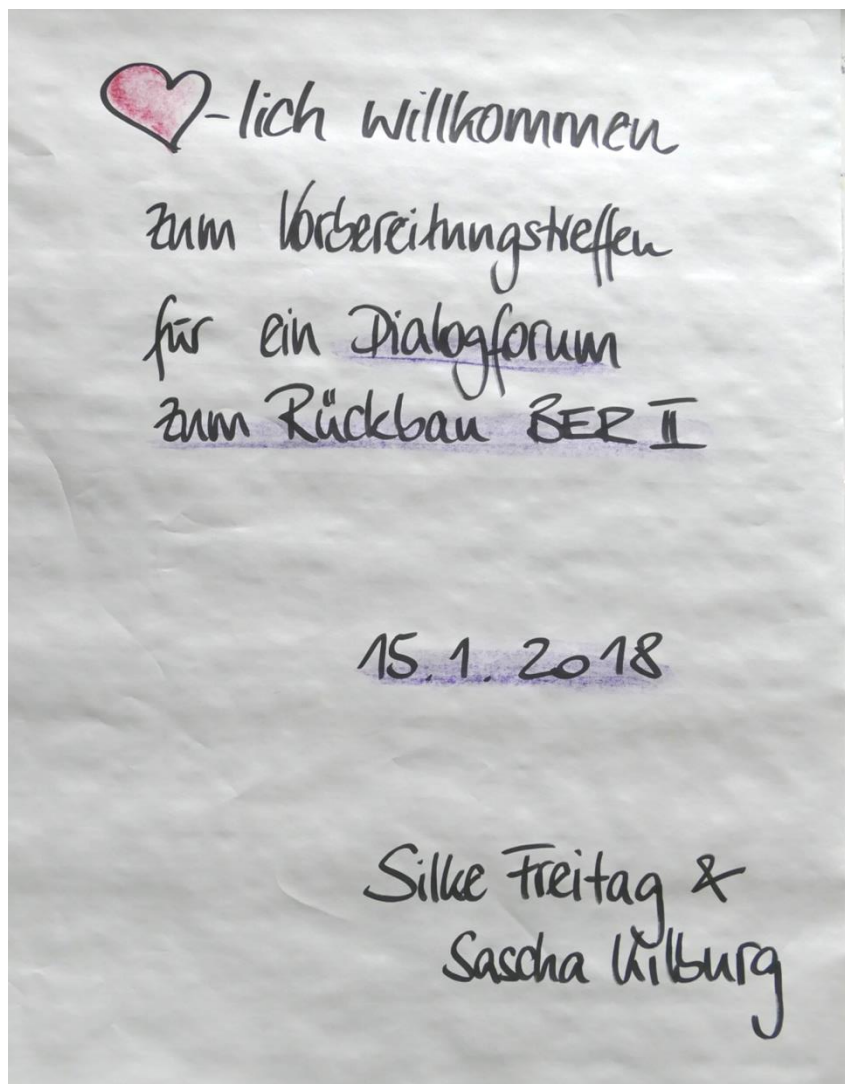 -lich willkommen
zum Vorbereitungstreffen
für ein Dialogforum
zum Rückbau BER II
15.1.2018
Silke Freitag &
Sascha Kilburg